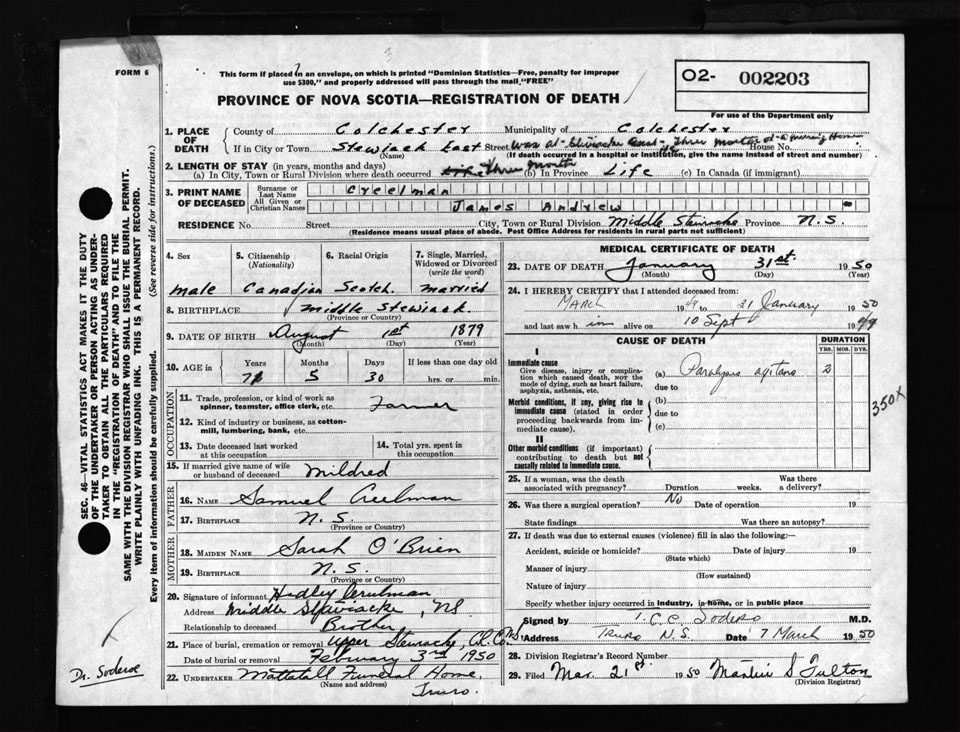 FORM 6
This form if placed in an envelope, on which is printed "Dominion Statistics—Free, penalty for improper
use $300," and properly addressed will pass through the mail "FREE"
PROVINCE OF NOVA SCOTIA—REGISTRATION OF DEATH
O2- 002203
For use of the Department only
SEC. 46—VITAL STATISTICS ACT MAKES IT THE DUTY
OF THE UNDERTAKER OR PERSON ACTING AS UNDER-
TAKER TO OBTAIN ALL THE PARTICULARS REQUIRED
IN THE "REGISTRATION OF DEATH" AND TO FILE THE
SAME WITH THE DIVISION REGISTRAR WHO SHALL ISSUE THE BURIAL PERMIT.
WRITE PLAINLY WITH UNFADING INK. THIS IS A PERMANENT RECORD.
Every item of information should be carefully supplied. (See reverse side for instructions.)
1. PLACE OF DEATH County of Colchester Municipality of Colchester
If in City or Town Stewiack East Street Was at Stewiacke East three months at a nursing Home House No.
(Name) (If death occurred in a hospital or institution, give the name instead of street and number)
2. LENGTH OF STAY (in years, months and days)
(a) In City, Town or Rural Division where death occurred three months (b) In Province Life (c) In Canada (if immigrant)
3. PRINT NAME OF DECEASED Surname or Last Name Creelman
All Given or Christian Names James Andrew
RESIDENCE No. Street City, Town or Rural Division Middle Stewiacke Province N.S.
(Residence means usual place of abode. Post Office Address for residents in rural parts not sufficient)
4. Sex 5. Citizenship (Nationality) 6. Racial Origin 7. Single, Married, Widowed or Divorced (write the word)
male Canadian Scotch married
8. BIRTHPLACE Middle Stewiack
(Province or Country)
9. DATE OF BIRTH August 1st 1879
(Month) (Day) (Year)
10. AGE in Years Months Days If less than one day old
5 30 hrs. or min.
OCCUPATION
11. Trade, profession, or kind of work as spinner, teamster, office clerk, etc. Farmer
12. Kind of industry or business, as cotton-mill, lumbering, bank, etc.
13. Date deceased last worked at this occupation 14. Total yrs. spent in this occupation
15. If married give name of wife or husband of deceased Mildred
FATHER
16. NAME Samuel Creelman
17. BIRTHPLACE N.S.
(Province or Country)
MOTHER
18. MAIDEN NAME Sarah O'Brien
19. BIRTHPLACE N.S.
(Province or Country)
20. Signature of informant Hedley Creelman
Address Middle Stewiacke, NS
Relationship to deceased Brother
21. Place of burial, cremation or removal Upper Stewiacke, Col. Co. N.S.
Date of burial or removal February 3rd 1950
22. UNDERTAKER Mattatall Funeral Home,
(Name and address) Truro.
MEDICAL CERTIFICATE OF DEATH
23. DATE OF DEATH January 31st. 1950
(Month) (Day) (Year)
24. I HEREBY CERTIFY that I attended deceased from:
March 1949 to 31 January 1950
and last saw him alive on 10 Sept 1949
CAUSE OF DEATH DURATION
YRS. MOS. DYS.
I
Immediate cause
Give disease, injury or complication which caused death, not the mode of dying, such as heart failure, asphyxia, asthenia, etc.
(a) Paralysis agitans 2
due to
Morbid conditions, if any, giving rise to immediate cause (stated in order proceeding backwards from immediate cause).
(b)
due to
(c)
350X
II
Other morbid conditions (if important) contributing to death but not causally related to immediate cause.
25. If a woman, was the death associated with pregnancy? Duration weeks. Was there a delivery?
26. Was there a surgical operation? No Date of operation 19
State findings Was there an autopsy?
27. If death was due to external causes (violence) fill in also the following:—
Accident, suicide or homicide? Date of injury 19
(State which)
Manner of injury
(How sustained)
Nature of injury
Specify whether injury occurred in industry, in home, or in public place
Signed by T.C.C. Sodero M.D.
Address Truro N.S. Date 7 March 1950
28. Division Registrar's Record Number
29. Filed Mar. 21st. 1950 S Fulton
(Division Registrar)
Dr. Soderoe